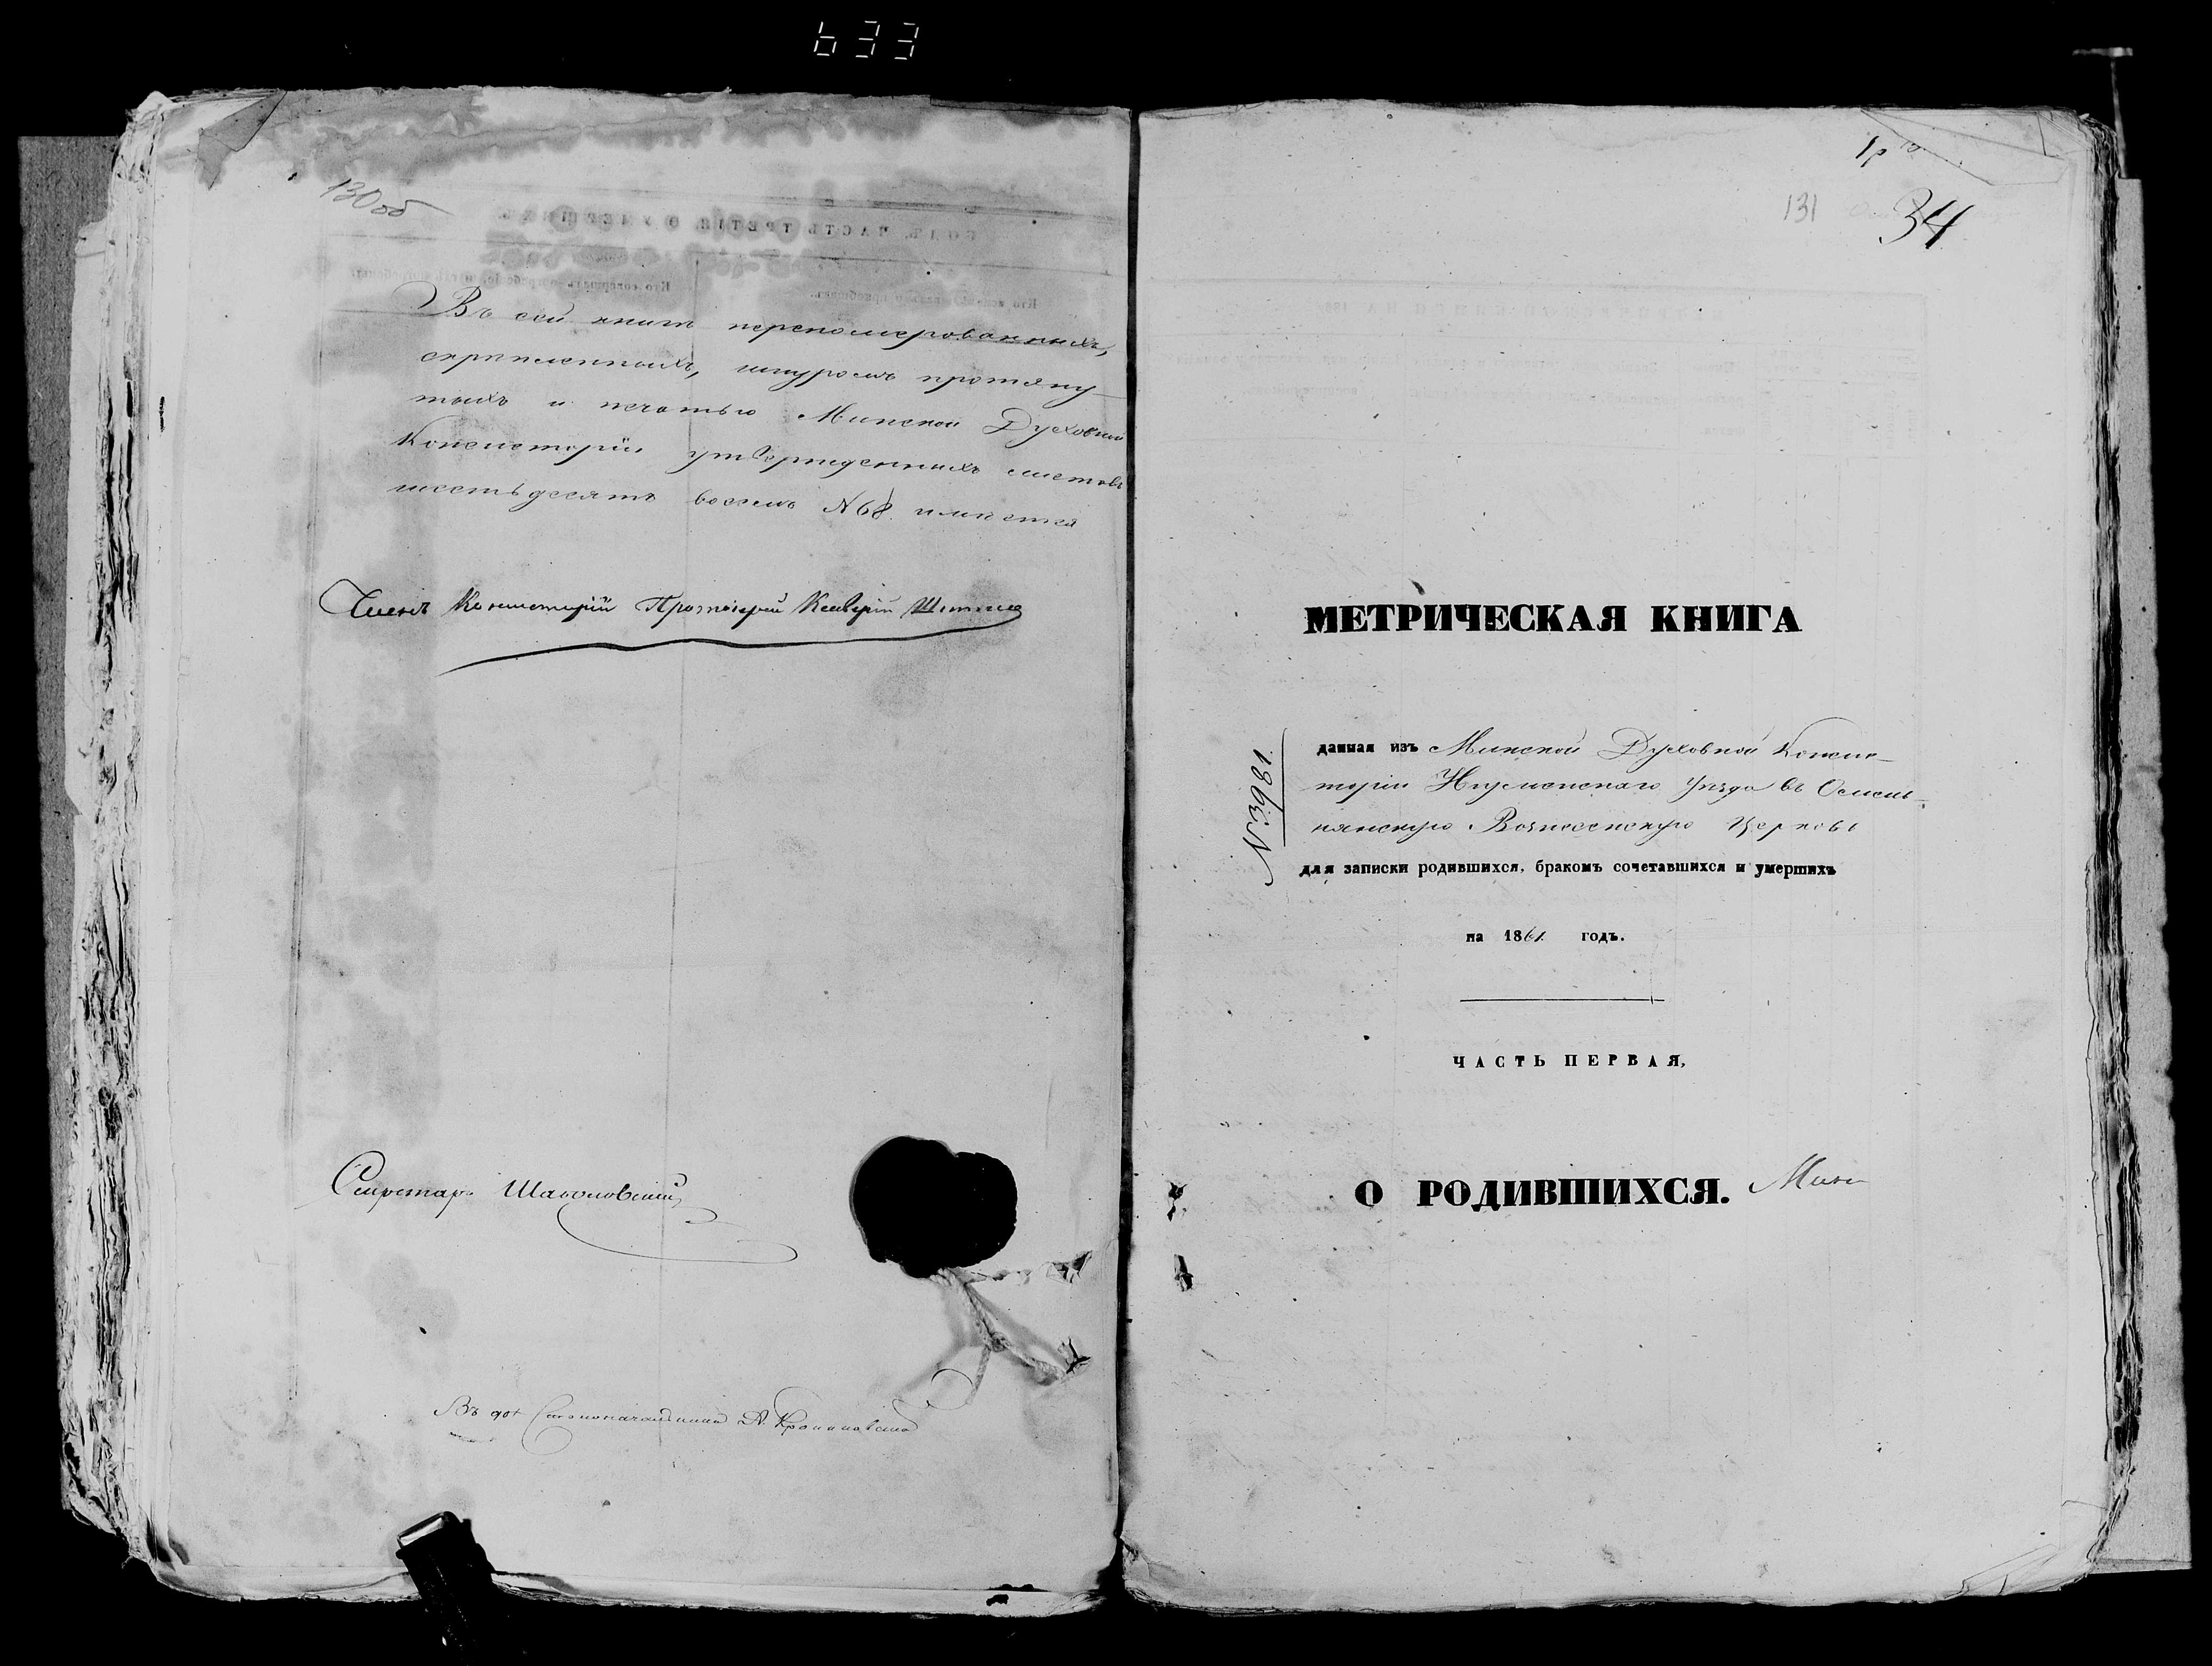 633
130об
Въ сей книгѣ перенумерованныхъ,
скрѣпленныхъ, шнуромъ протяну-
тыхъ и печатью Минской Духовной
Консисторіи утвержденныхъ листовъ
шестьдесятъ восемь №68. имѣется
Членъ Консисторіи Протоіерей
Секретарь
Въ дол Столоначальника А.
131
34
МЕТРИЧЕСКАЯ КНИГА
данная изъ Минской Духовной Консис-
торіи Игуменскаго Уѣзда въ
Вознесенскую Церковь
для записки родившихся, бракомъ сочетавшихся и умершихъ
на 1861. годъ.
ЧАСТЬ ПЕРВАЯ,
О РОДИВШИХСЯ.